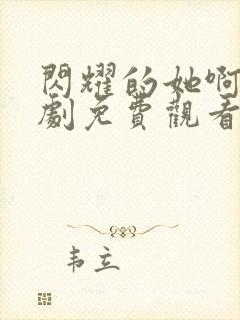 閃耀的她啊
劇免費觀看
韦立